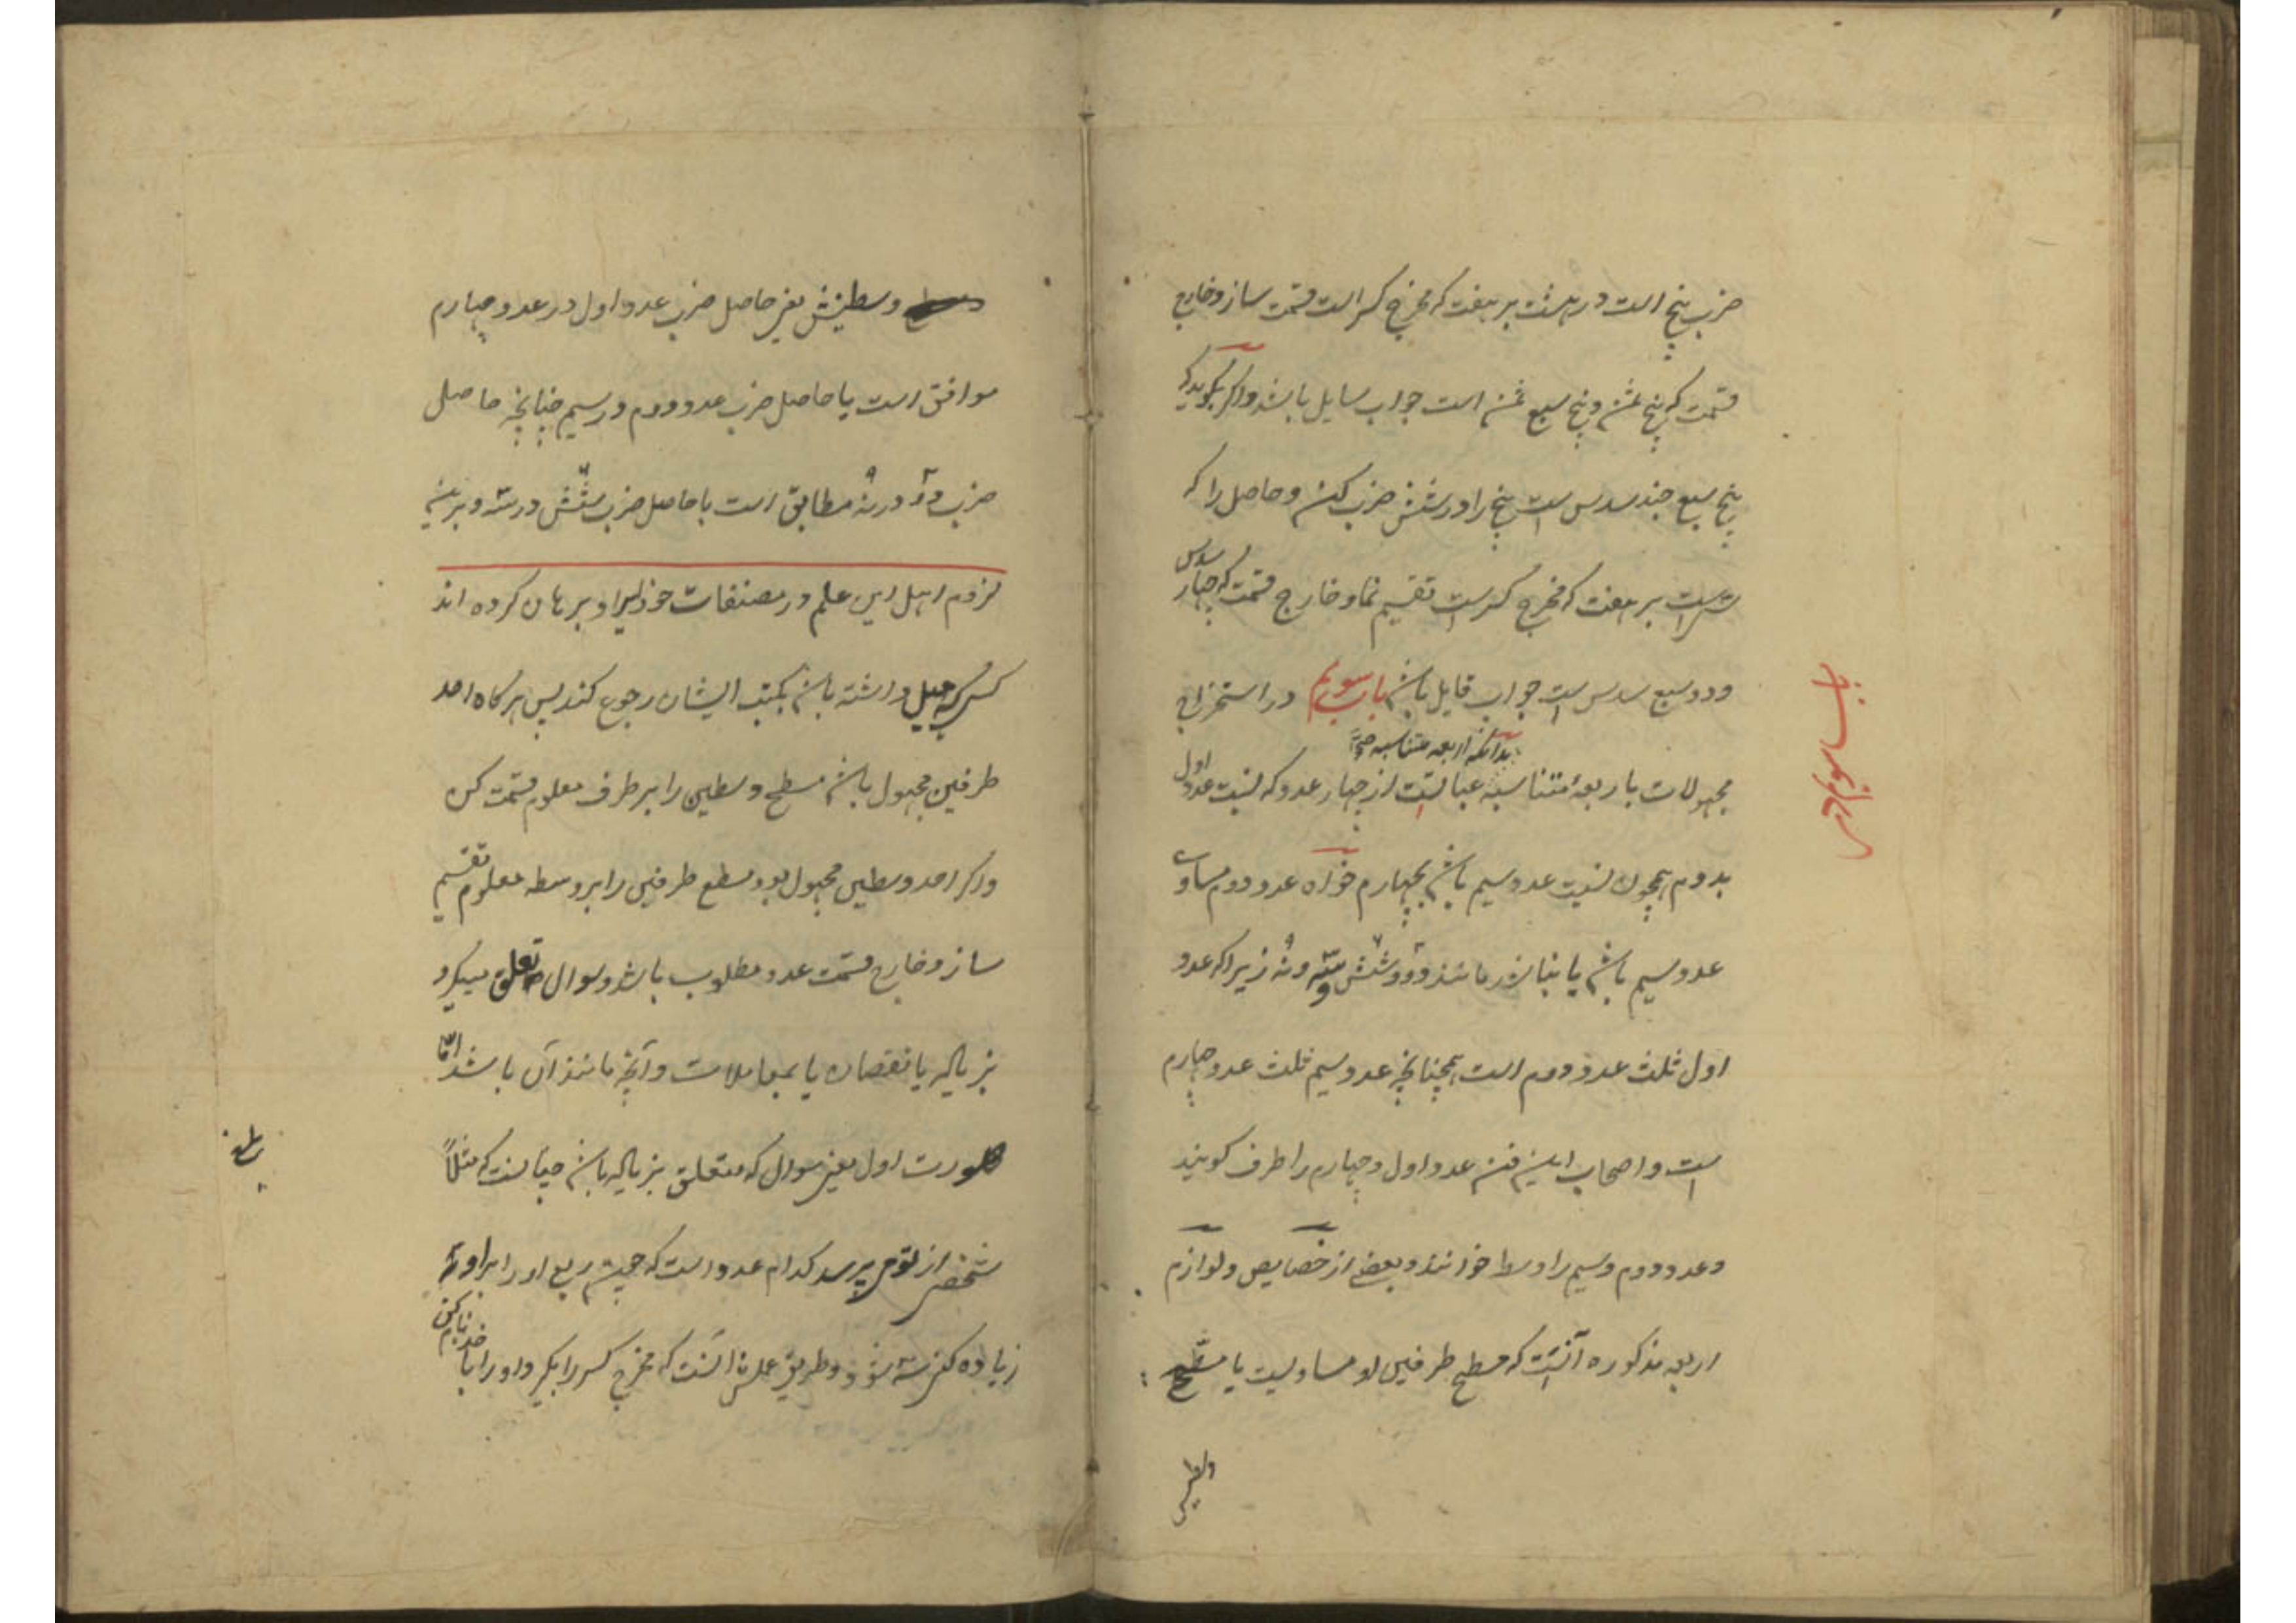 ضرب پنج است در هشت بر هفت که مخرج کسر است قسمت ساز و خارج
قسمت که پنج ثمن و پنج سبع ثمن است جواب سایل باشد و اگر بگوید که
پنج سبع چند سدس است پنج را در شش ضرب کن و حاصل را که
سی است بر هفت که مخرج کسر است تقسیم نما و خارج قسمت که چهار سدس
و دو سبع سدس است جواب قایل باشد باب سویم در استخراج
بدانکه اربعه متناسبه
مجهولات باربعهٔ متناسبه عبارتست از چهار عدد که نسبت عدد اول
بدوم همچون نسبت عدد سیم باشد بچهارم خواه عدد دوم مساوی
عدد سیم باشد یا نباشد مانند دو و شش و سه و نه زیرا که عدد
اول ثلث عدد دوم است همچنانچه عدد سیم ثلث عدد چهارم
است و اصحاب این فن عدد اول و چهارم را طرف گویند
و عدد دوم و سیم را وسط خوانند و بعضی از خصایص و لوازم
اربعه مذکوره آنست که مسطح طرفین او مساویست با مسطح
باب سویم در
وسطینش یعنی حاصل ضرب عدد اول در عدد چهارم
موافق است با حاصل ضرب عدد دوم در سیم چنانچه حاصل
ضرب دو در نه مطابق است با حاصل ضرب شش در سه و برین
لزوم اهل این علم در مصنفات خود ایراد برهان کرده اند
کسی که میل داشته باشد بکتب ایشان رجوع کند پس هرگاه احد
طرفین مجهول باشد مسطح وسطین را بر طرف معلوم قسمت کن
و اگر احد وسطین مجهول بود مسطح طرفین را بر وسطه معلوم تقسیم
ساز و خارج قسمت عدد مطلوب باشد و سوال تعلق میگیرد
بزیاده یا نقصان یا بمعاملات و آنچه مانند آن باشد امّا
صورت اول یعنی سوال که متعلق بزیاده باشد چنانست که مثلاً
شخصی از تو می پرسد کدام عدد است که چون ربع او را بر او
زیاده کنی سه شود و طریق عملش آنست که مخرج کسر را بگیر و او را با